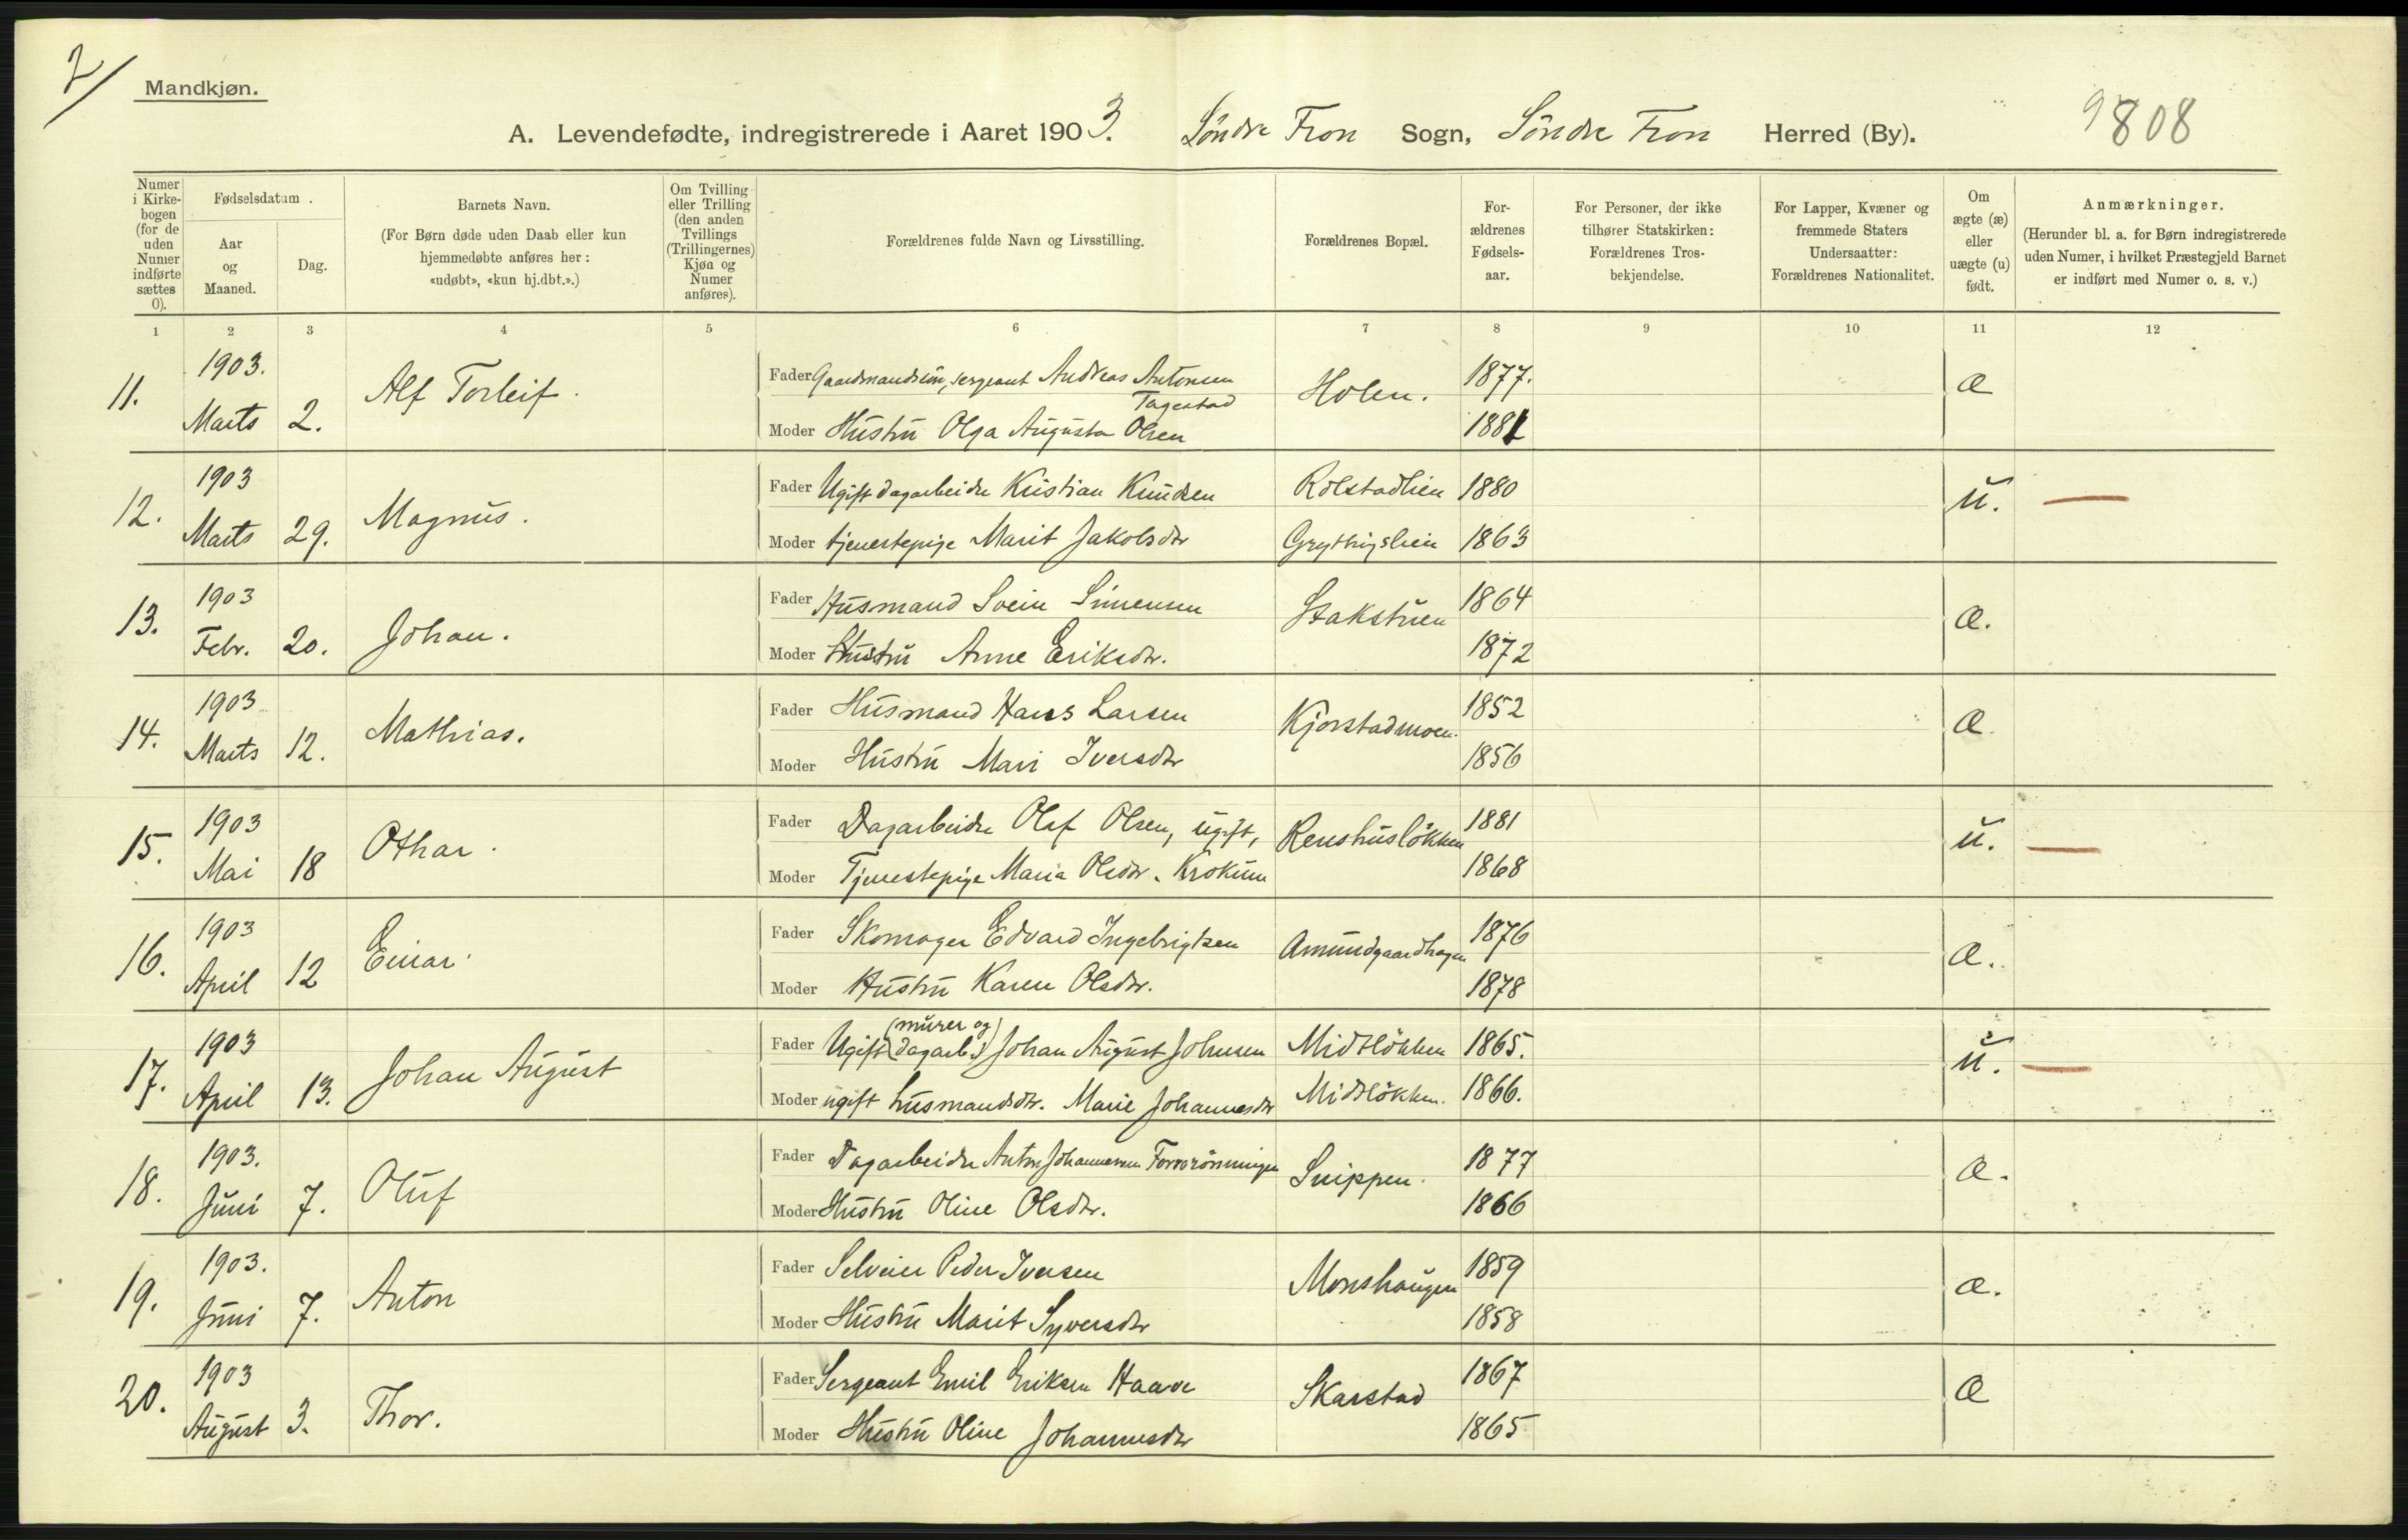 2/
Mandkjøn.
A. Levendefødte, indregistrerede i Aaret 1903. Söndre Fron Sogn, Söndre Fron Herred (By). 9808
Numer i Kirkebogen (for de uden Numer indførte sættes 0).
Fødselsdatum.
Aar og Maaned.
Dag.
Barnets Navn.
(For Børn døde uden Daab eller kun hjemmedøbte anføres her: «udøbt», «kun hj.dbt.».)
Om Tvilling eller Trilling (den anden Tvillings (Trillingernes) Kjøn og Numer anføres).
Forældrenes fulde Navn og Livsstilling.
Forældrenes Bopæl.
Forældrenes Fødselsaar.
For Personer, der ikke tilhører Statskirken: Forældrenes Trosbekjendelse.
For Lapper, Kvæner og fremmede Staters Undersaatter: Forældrenes Nationalitet.
Om ægte (æ) eller uægte (u) født.
Anmærkninger.
(Herunder bl. a. for Børn indregistrerede uden Numer, i hvilket Præstegjeld Barnet er indført med Numer o. s. v.)
1 2 3 4 5 6 7 8 9 10 11 12
11. 1903. Marts 2. Alf Torleif.
Fader Gaardmandssön, sergeant Andreas Antonsen Tagestad Holen. 1877. æ
Moder Hustru Olga Augusta Olsen 1881
12. 1903 Marts 29. Magnus.
Fader Ugift dagarbeider Kristian Knudsen Rolstadlien 1880 u. —
Moder tjenestepige Marit Jakobsdtr Grythingslien 1863
13. 1903 Febr. 20. Johan.
Fader Husmand Svein Simensen Stakstuen 1864 æ.
Moder Hustru Anne Eriksdtr. 1872
14. 1903 Marts 12. Mathias.
Fader Husmand Hans Larsen Kjorstadmoen. 1852 æ.
Moder Hustru Mari Iversdtr 1856
15. 1903 Mai 18 Othar.
Fader Dagarbeider Olaf Olsen, ugift, Renshuslökken 1881 u. —
Moder Tjenestepige Maria Olsdtr. Krokum 1868
16. 1903 April 12 Einar.
Fader Skomager Edvard Ingebrigtsen Amundgaardhagen 1876 æ.
Moder Hustru Karen Olsdtr. 1878
17. 1903 April 13. Johan August
Fader Ugift (murer og dagarb.) Johan August Johnsen Midtlökken 1865. u. —
Moder ugift husmandsdtr. Marie Johannesdtr Midtlökken. 1866.
18. 1903. Juni 7. Oluf
Fader Dagarbeider Anton Johannesen Snippen. 1877 æ.
Moder Hustru Oline Olsdtr. 1866
19. 1903. Juni 7. Anton
Fader Selveier Peder Iversen Monshaugen 1859 æ.
Moder Hustru Marit Syversdtr 1858
20. 1903 August 3. Thor.
Fader Sergeant Emil Eriksen Haave Skarstad 1867 æ
Moder Hustru Oline Johannesdtr 1865